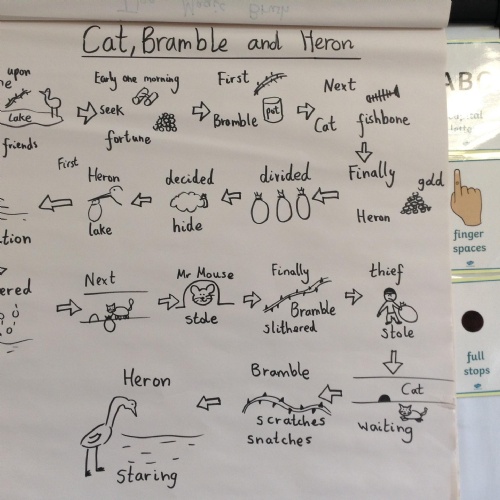 Cat, Bramble and Heron
upon
Early one morning
First
Next
lake
seek
pot
friends
fortune
Bramble
Cat
fishbone
First
Heron
decided
divided
Finally
gold
lake
hide
Heron
Next
Mr Mouse
Finally
thief
stole
Bramble
slithered
stole
Heron
Bramble
Cat
scratches
snatches
waiting
staring
ABC
finger
spaces
full
stops